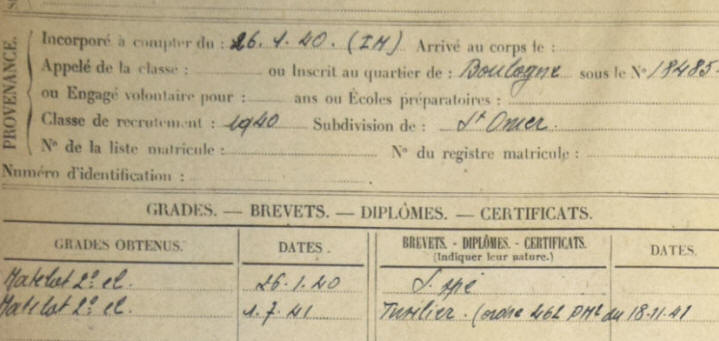 PROVENANCE.
Incorporé à compter du : 26. 1. 40. (IM) Arrivé au corps le :
Appelé de la classe : ou Inscrit au quartier de : Boulogne sous le N° 18485
ou Engagé volontaire pour : ans ou Écoles préparatoires :
Classe de recrutement : 1940 Subdivision de : St Omer
N° de la liste matricule : N° du registre matricule :
Numéro d'identification :
GRADES. — BREVETS. — DIPLÔMES. — CERTIFICATS.
GRADES OBTENUS. DATES. BREVETS. - DIPLÔMES. - CERTIFICATS. (Indiquer leur nature.) DATES.
Matelot 2e cl. 26.1.40 S. spé
Matelot 2e cl. 1.7.41 Fusilier. (ordre 462 du 18.11.41